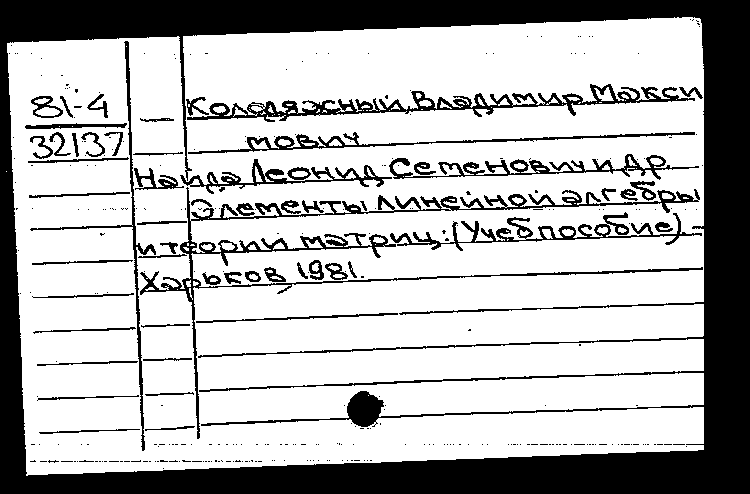 81-4
32137
— Колодяжный, Владимир Макси
мович
Найда, Леонид Семенович и др.
Элементы линейной алгебры
и теории матриц: (Учеб пособие) –
Харьков, 1981.